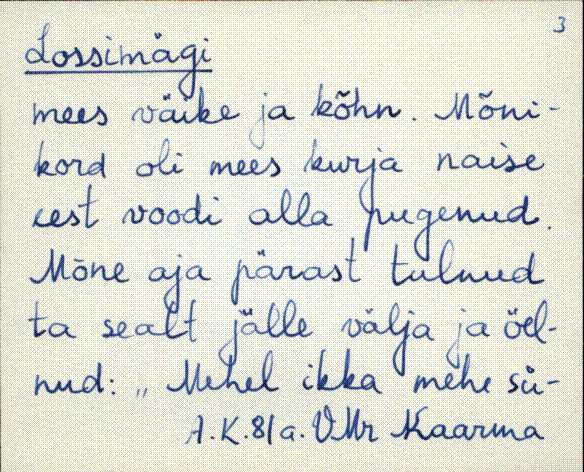 3
Lossimägi
mees väike ja kõhn. Mõni-
kord oli mees kurja naise
eest voodi alla pugenud.
Mõne aja pärast tulnud
ta sealt jälle välja ja öel-
nud: „Mehel ikka mehe sü-
A.K.81a. VMr Kaarma